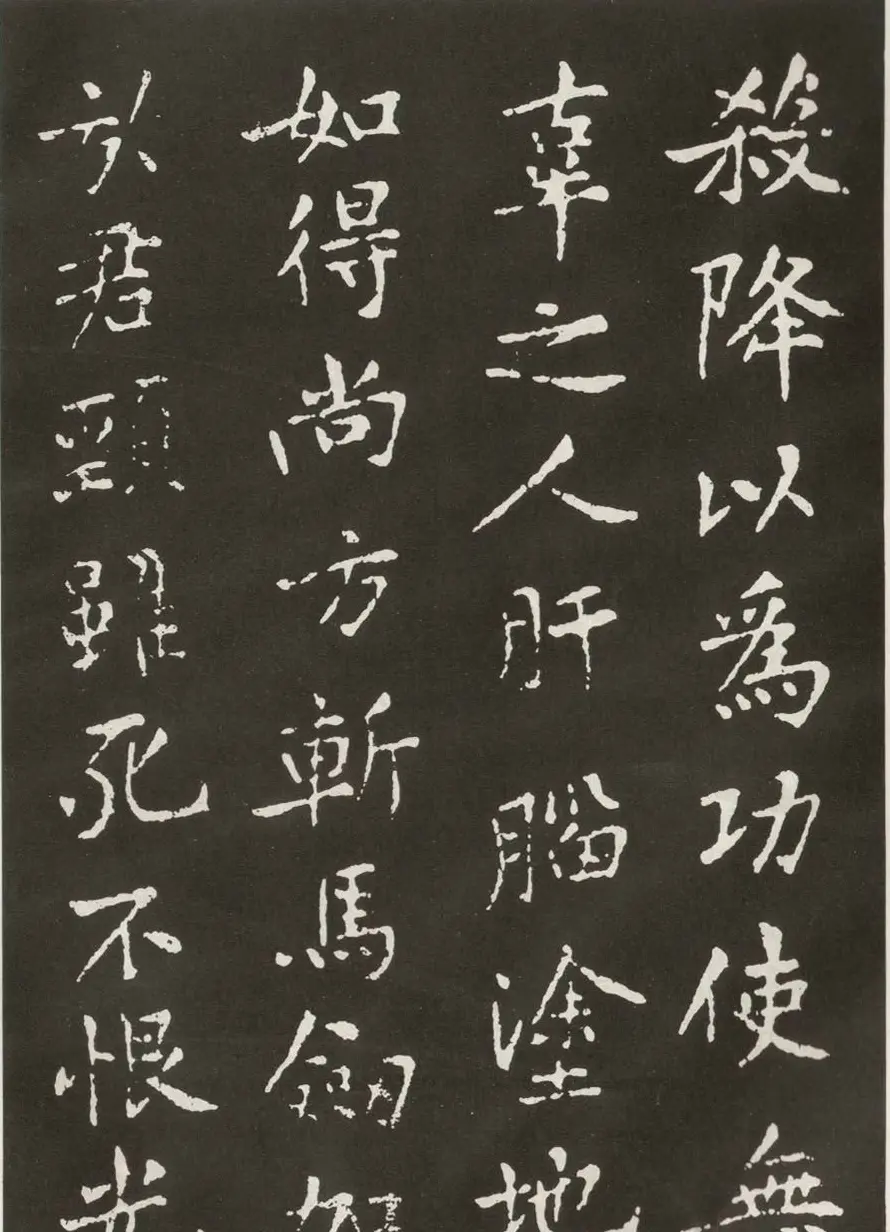 殺降以為功使無
辜之人肝腦塗地
如得尚方斬馬劍加
於君頸雖死不恨